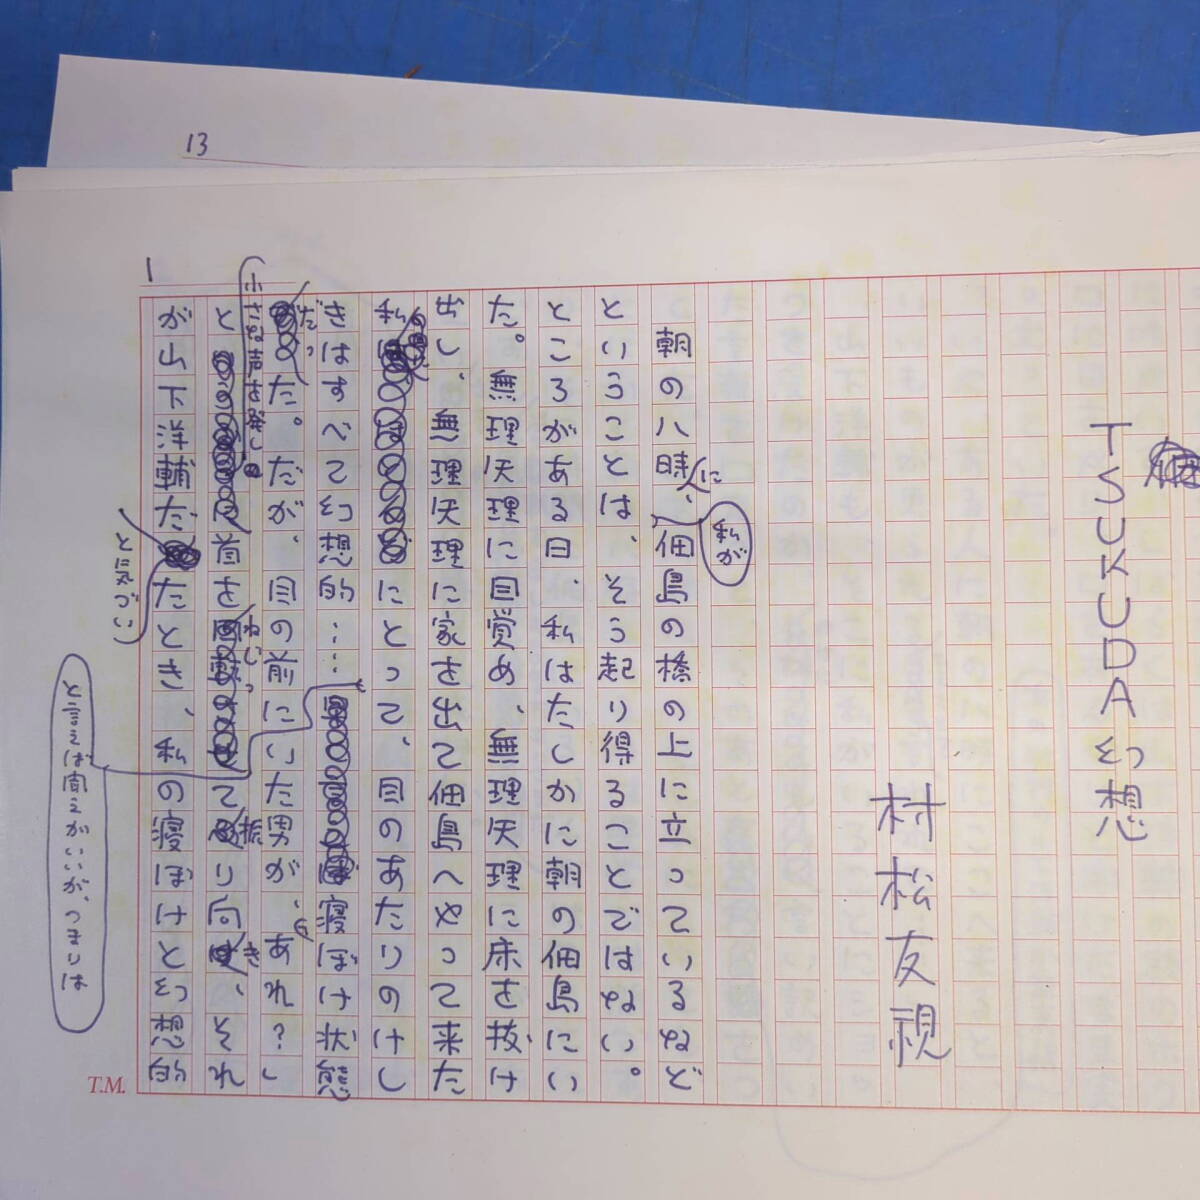 13
1
TSUKUDA幻想
村松友視
朝の八時に、私が佃島の橋の上に立っているなど
ということは、そう起り得ることではない。
ところがある日、私はたしかに朝の佃島にい
た。無理矢理に目覚め、無理矢理に床を抜け
出し、無理矢理に家を出て佃島へやって来た
私にとって、目のあたりのけし
きはすべて幻想的……
と言えば聞えがいいが、つまりは
寝ぼけ状態
だった。だが、目の前にいた男が、あれ?
と
小さな声を発し
首を
ねじ
って
振り向き、それ
が山下洋輔だ
と気づい
たとき、私の寝ぼけと幻想的
T.M.